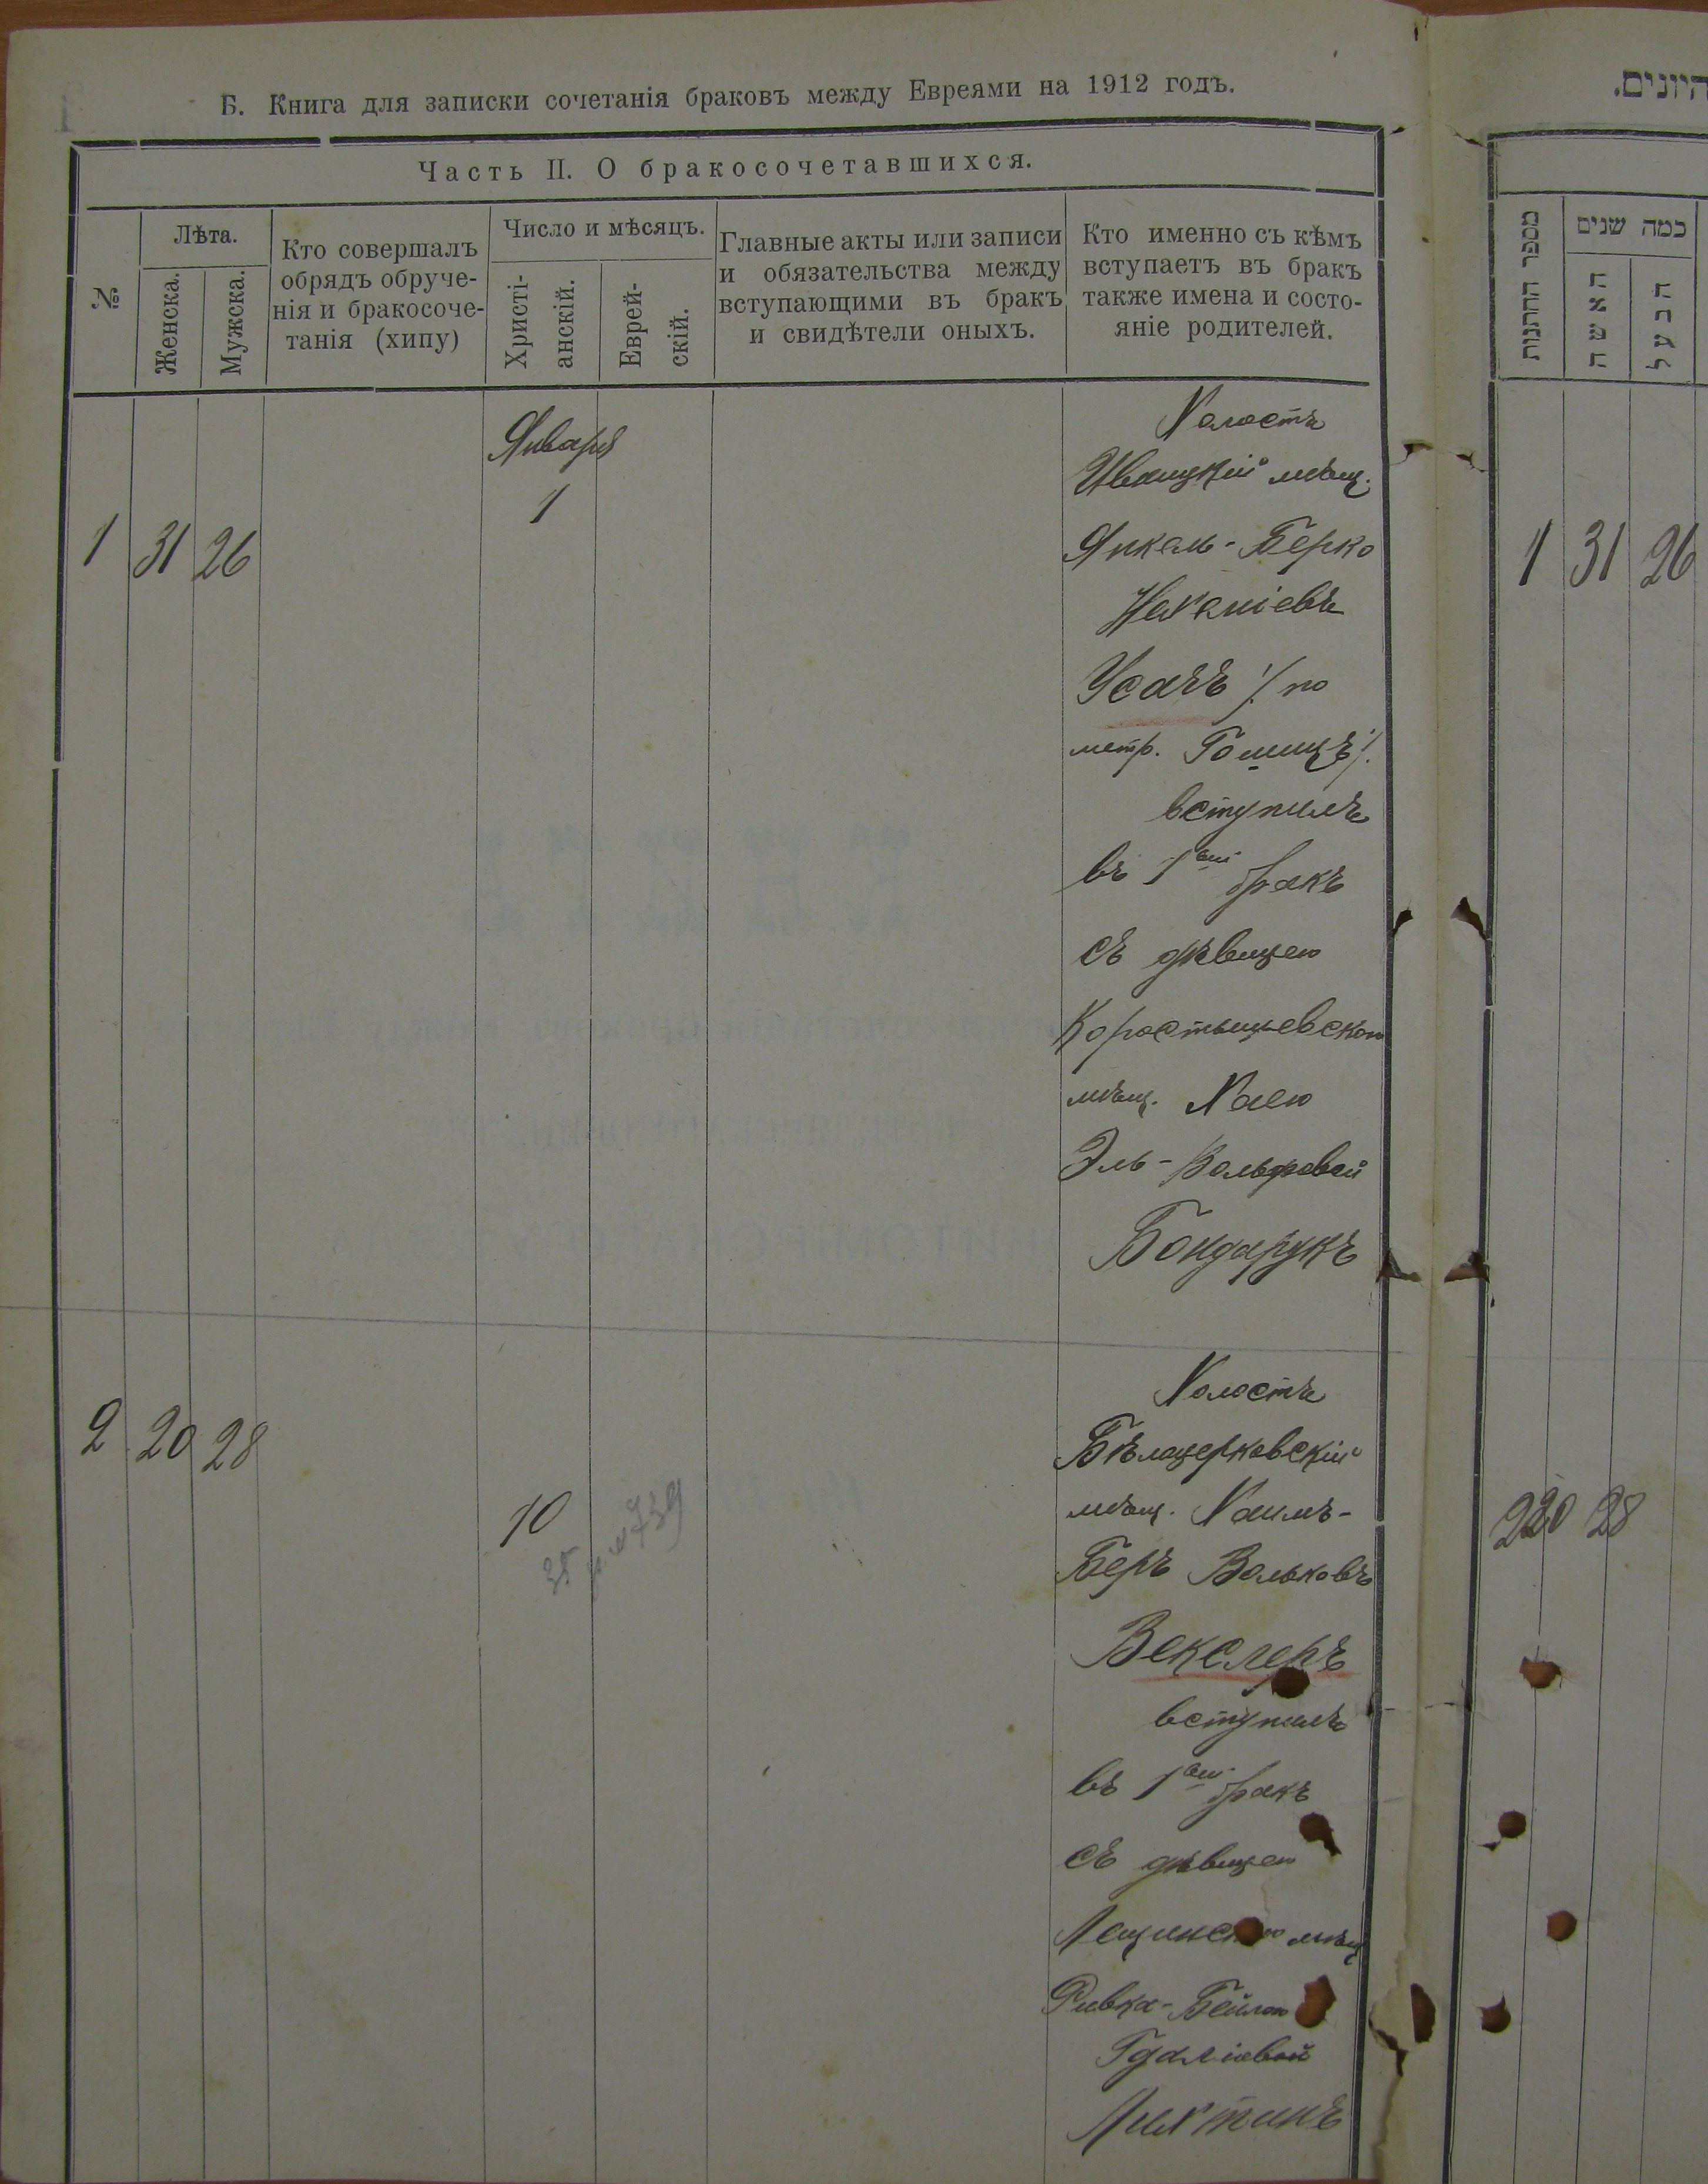 Б. Книга для записки сочетанія браковъ между Евреями на 1912 годъ.
Часть II. О бракосочетавшихся.
№
Лѣта.
Женска.
Мужска.
Кто совершалъ
обрядъ обруче-
нія и бракосоче-
танія (хипу)
Число и мѣсяцъ.
Христі-
анскій.
Еврей-
скій.
Главные акты или записи
и обязательства между
вступающими въ бракъ
и свидѣтели оныхъ.
Кто именно съ кѣмъ
вступаетъ въ бракъ
также имена и состо-
яніе родителей.
1 31 26
Января
1
Холостъ
Иваницкій мѣщ.
Янкель-Берко
Нахманіевъ
Усачъ /. по
метр. Гомицъ /.
вступилъ
въ 1ый бракъ
съ дѣвицею
Коростышевскою
мѣщ. Хаею
Эль-Вольфовой
Бондарукъ
2 20 28
10
Холостъ
Бѣлоцерковскій
мѣщ. Хаимъ-
Беръ Вольковъ
Векслеръ
вступилъ
въ 1ый бракъ
съ дѣвицею
мѣщ
Ривка-Бейлою
Гдаліевой
Лихтинъ
היונים.
מספר החתנות
כמה שנים
האשה
הבעל
1 31 26
2 20 28